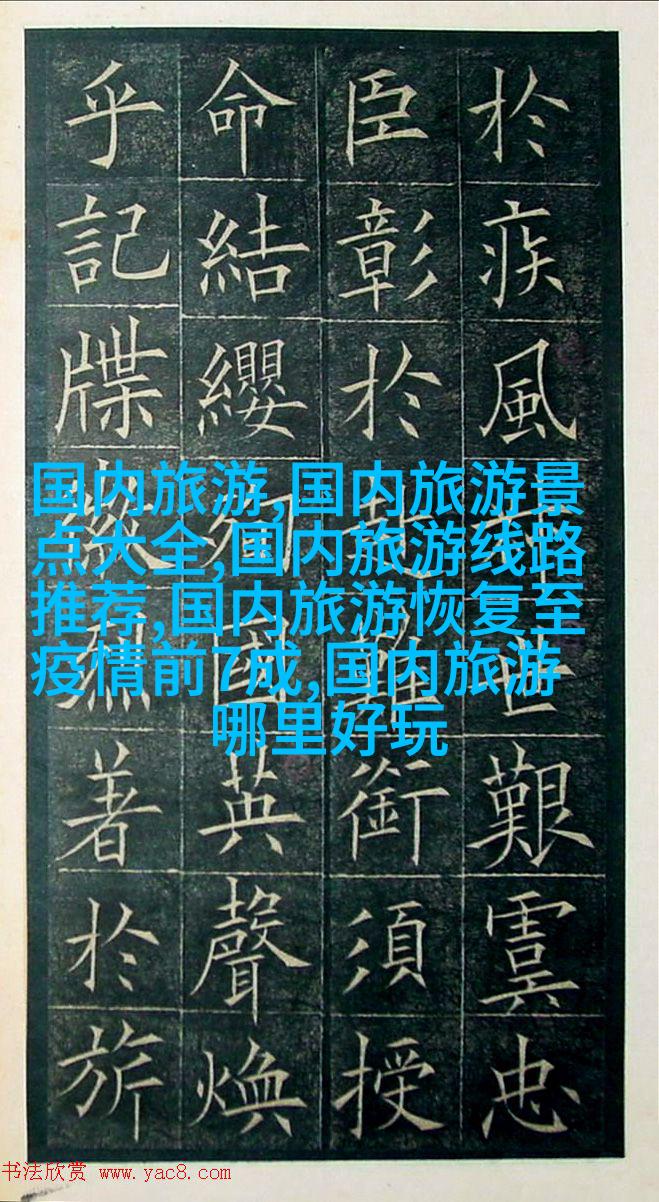 於疾風叔世艱虞忠
臣彰於赴難銜須授
命結纓殉國英聲煥
乎記牒徽烈著於旂
国内旅游,国内旅游景
点大全,国内旅游线路
推荐,国内旅游恢复至
疫情前7成,国内旅游
哪里好玩
书法欣赏 www.yac8.com